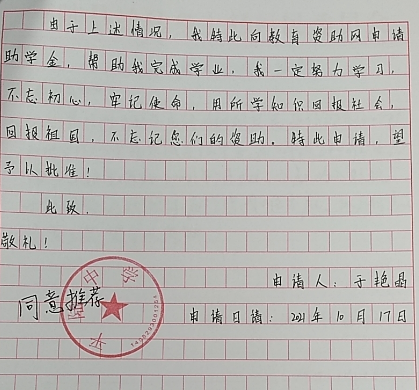 由于上述情况，我特此向教育资助网申请
助学金，帮助我完成学业。我一定努力学习，
不忘初心，牢记使命，用所学知识回报社会，
回报祖国，不忘记您们的资助。特此申请，望
予以批准！
此致
敬礼！
申请人：于艳晶
同意推荐
申请日请：2021年10月17日
中学